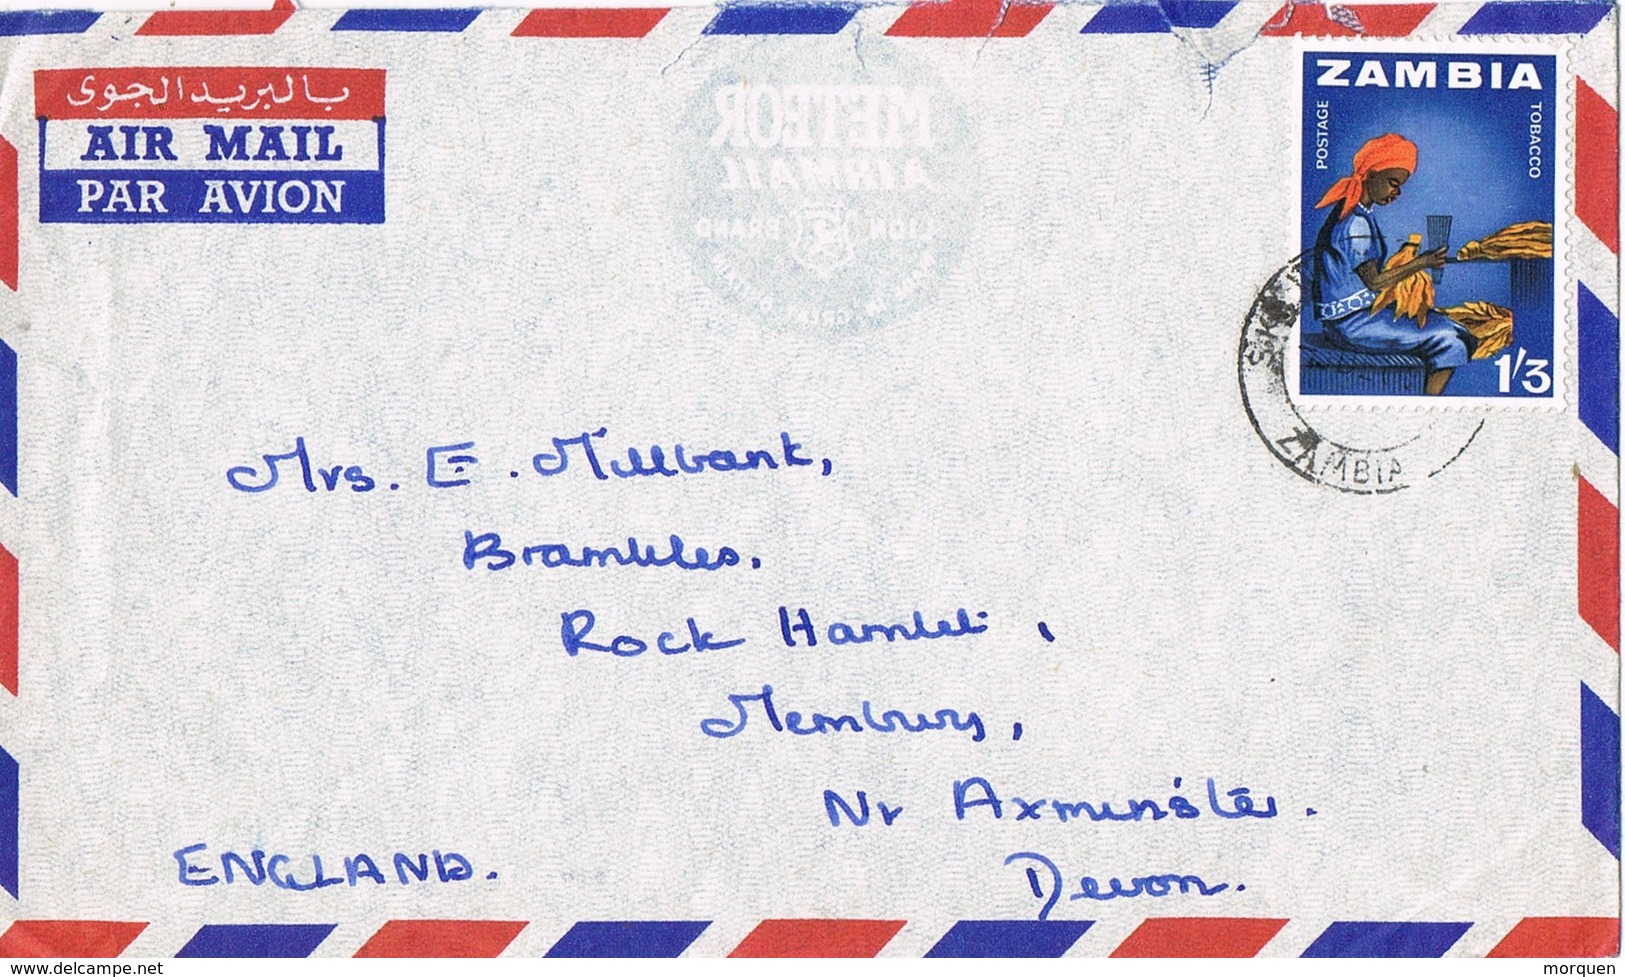 بالبريد الجوى
AIR MAIL
PAR AVION
METEOR
AIRMAIL
LION BRAND
ZAMBIA
POSTAGE
TOBACCO
1/3
ZAMBIA
Mrs. E. Millbank,
Brambles.
Rock Hamlet,
Membury,
Nr Axminster.
Devon.
ENGLAND.
www.delcampe.net
morquen